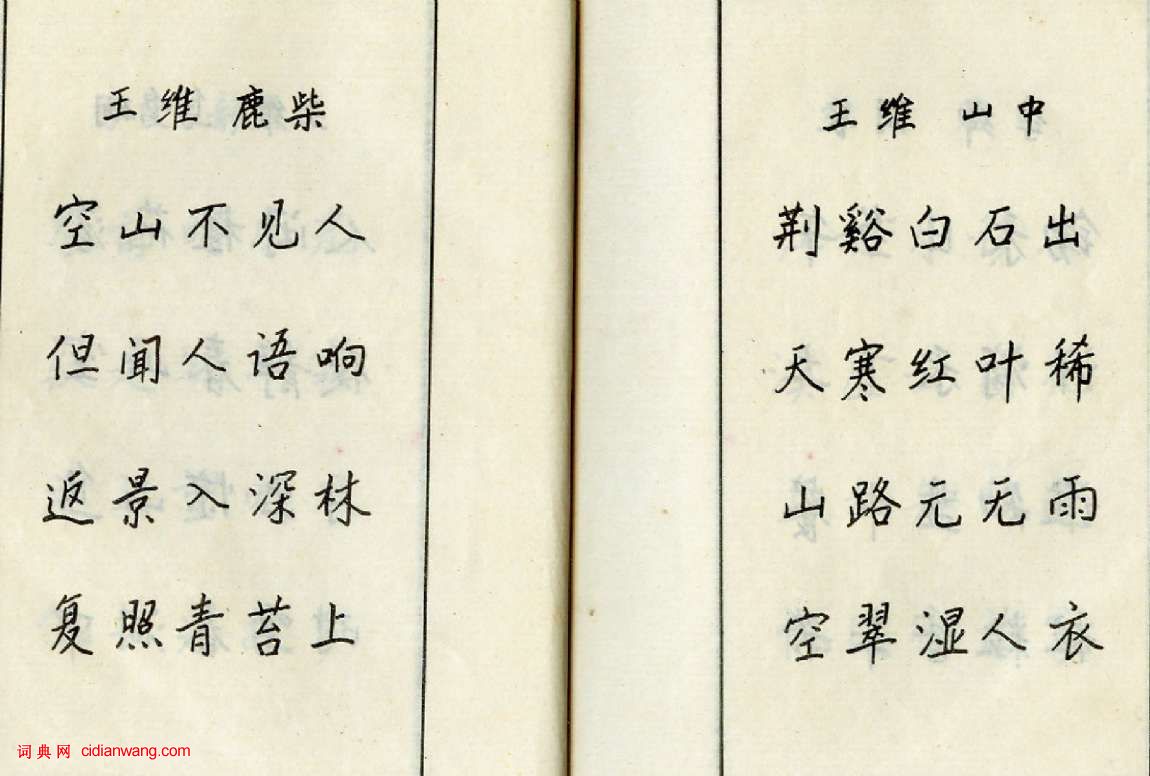 王维 鹿柴
空山不见人
但闻人语响
返景入深林
复照青苔上
王维 山中
荆谿白石出
天寒红叶稀
山路元无雨
空翠湿人衣
词典网 cidianwang.com